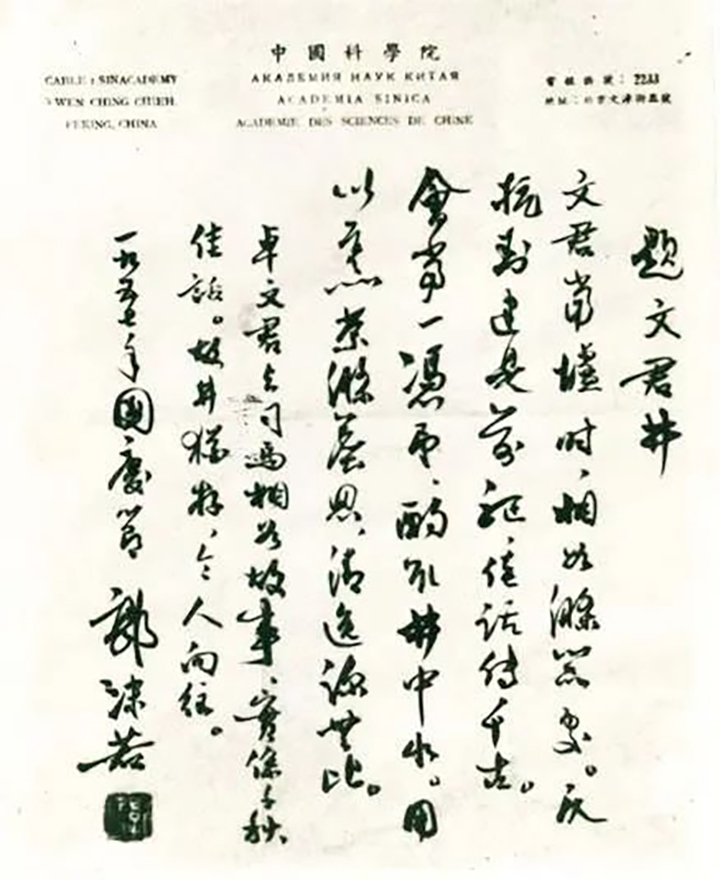 中國科學院
АКАДЕМИЯ НАУК КИТАЯ
ACADEMIA SINICA
ACADEMIE DES SCIENCES DE CHINE
CABLE: SINACADEMY
3 WEN CHING CHIEH.
PEKING, CHINA
電報掛號：2233
地址：北京文津街三號
題文君井
文君當壚時、相如滌器處。反
抗封建是前驅、佳話傳千古。
會當一憑弔、酌取井中水。用
以烹茶滌塵思、清逸涼無比。
卓文君与司馬相如故事、實係千秋
佳話。故井猶存、令人向往。
一九五七年國慶節 郭沫若